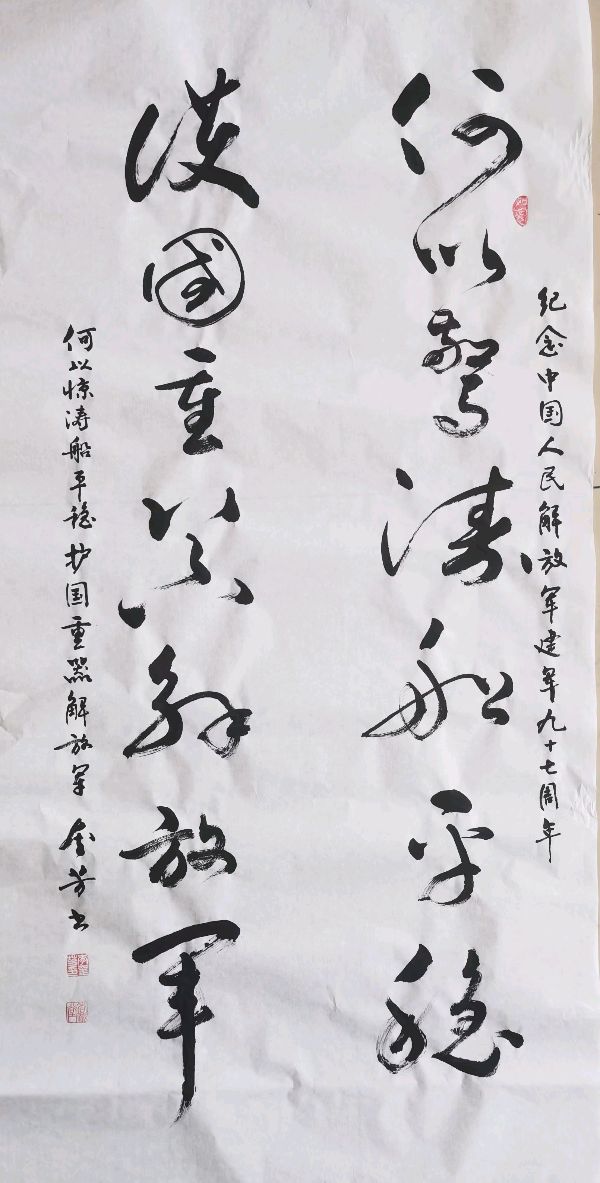 纪念中国人民解放军建军九十七周年
何以驚濤船平穩
護國重器解放军
何以惊涛船平稳护国重器解放军 金芳书